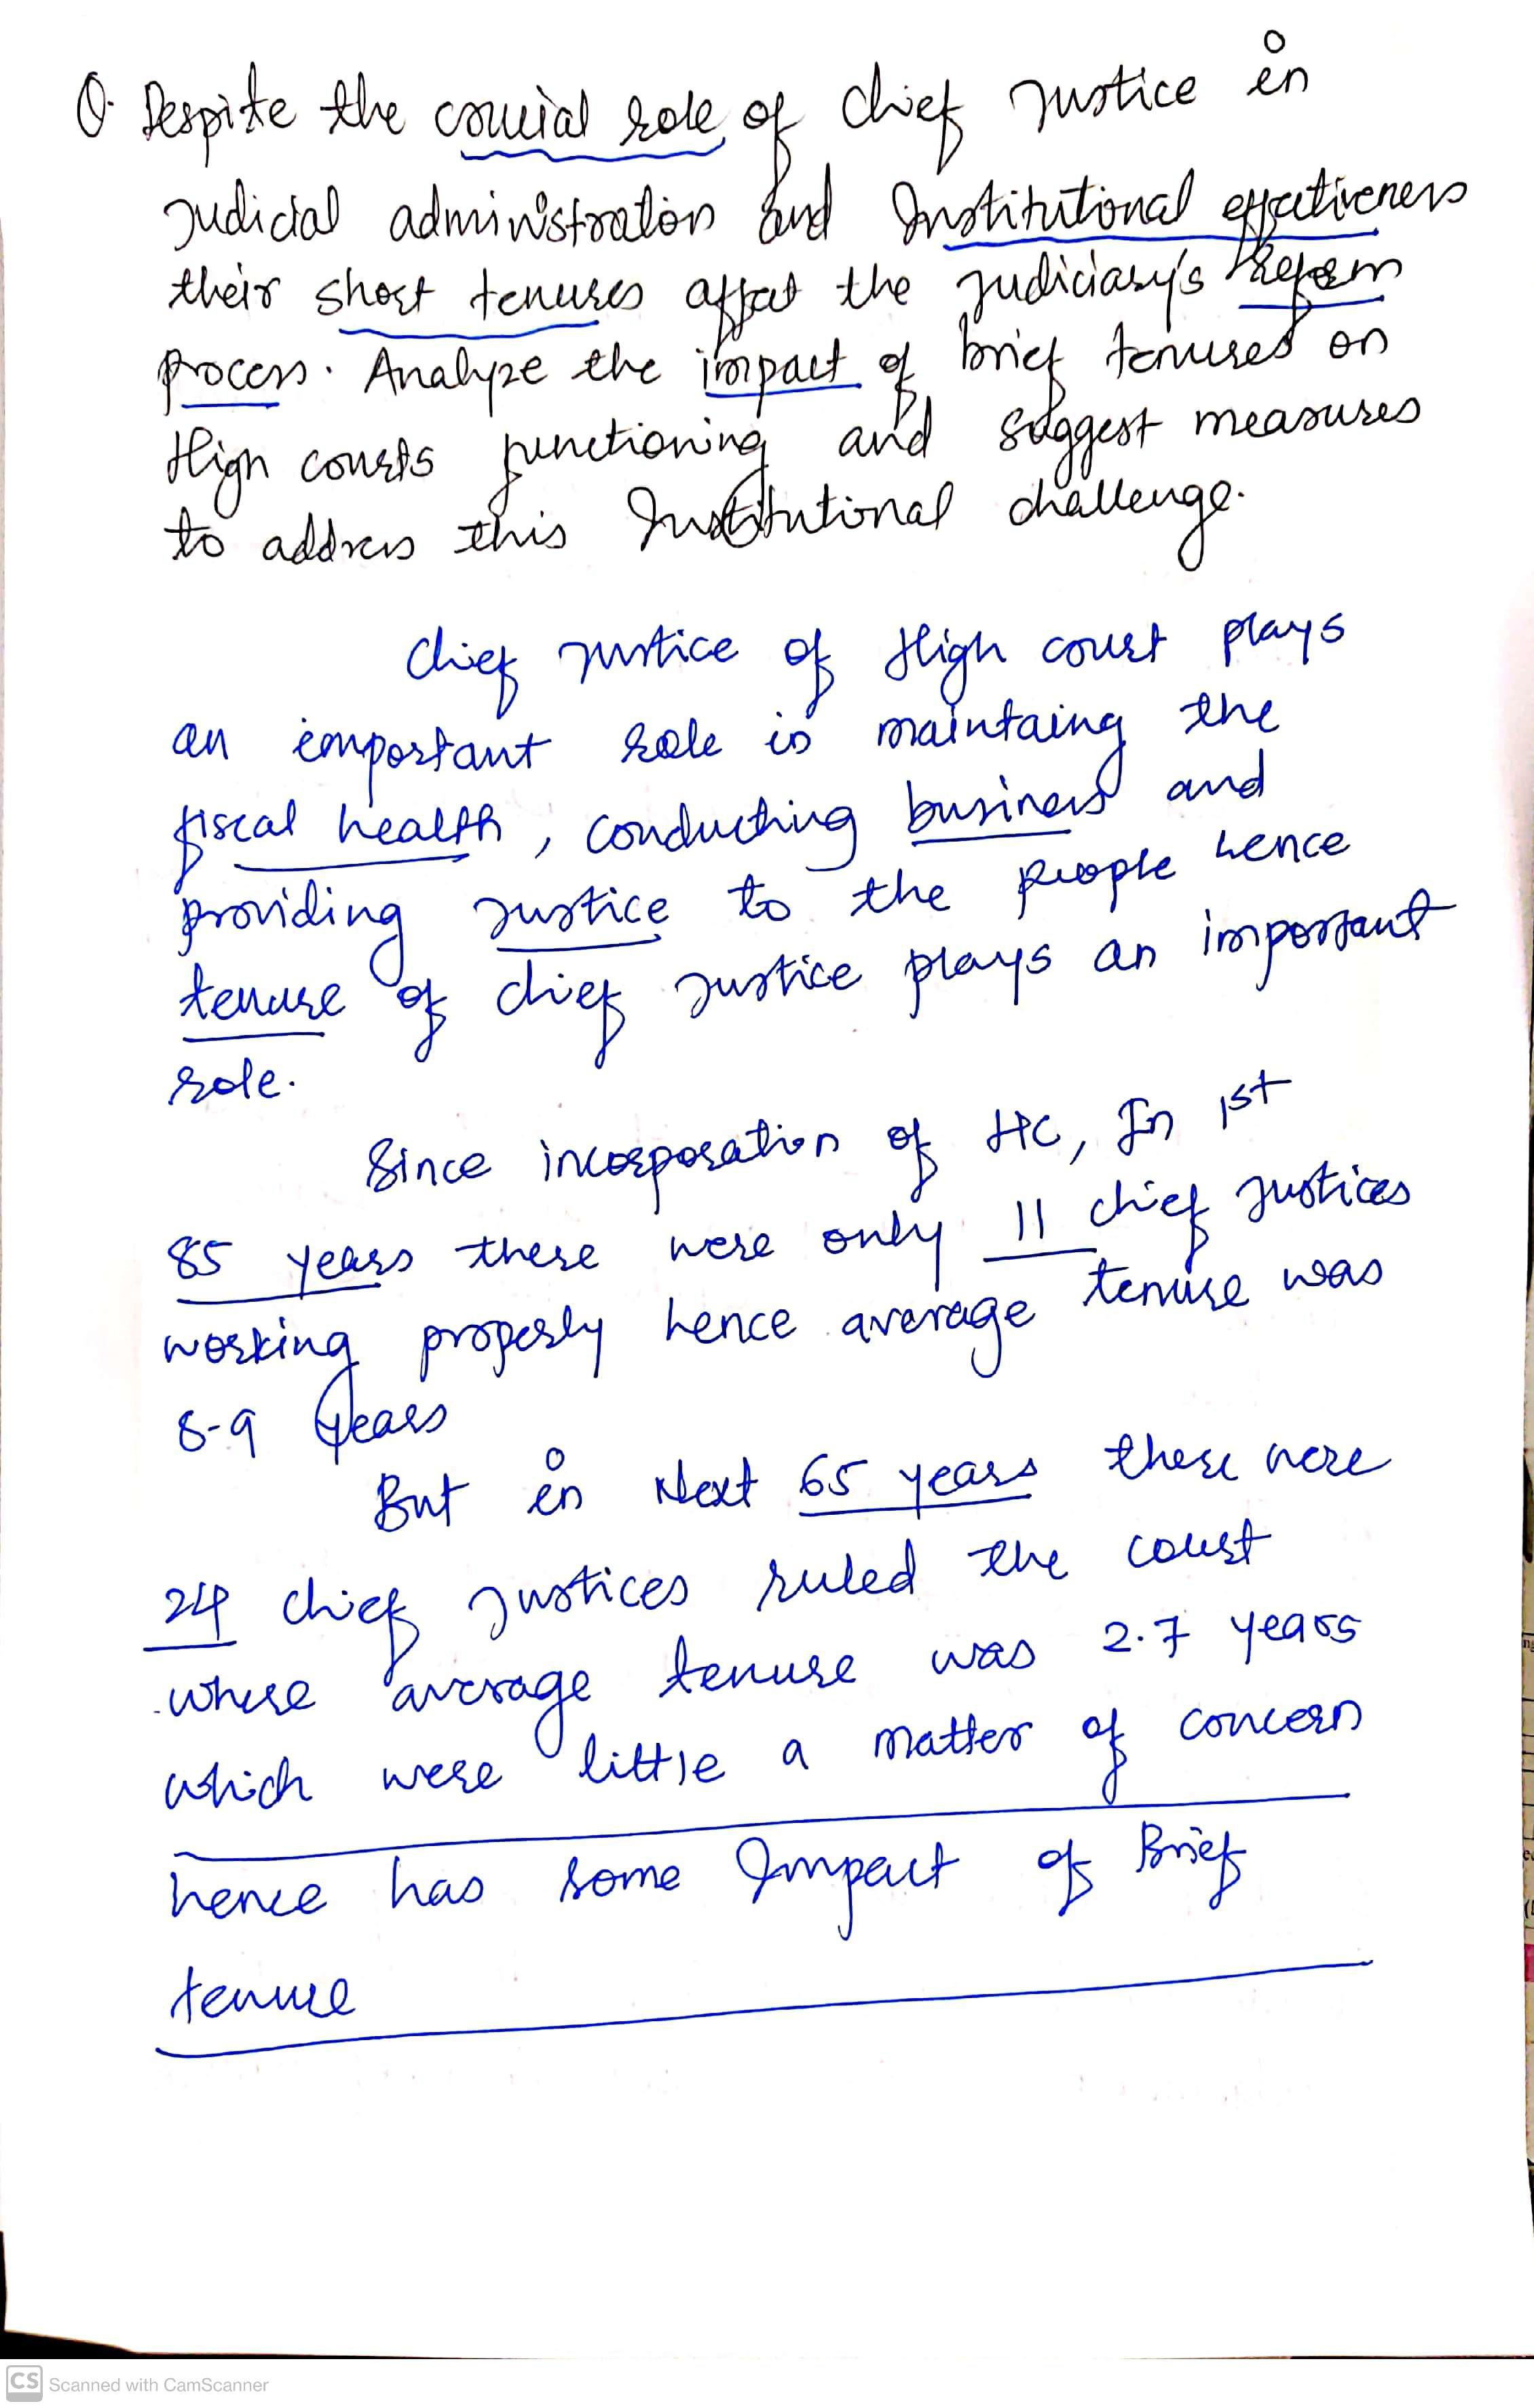 Q. Despite the crucial role of Chief Justice in
Judicial administration and Institutional effectiveness
their short tenures affect the judiciary's reform
process. Analyze the impact of brief tenures on
High courts functioning and suggest measures
to address this Institutional challenge.
Chief Justice of High court plays
an important role is maintaing the
fiscal health, conducting business and
providing Justice to the people hence
tenure of chief Justice plays an important
role.
Since incorporation of HC, In 1st
85 years there were only 11 chief Justices
working properly hence average tenure was
8-9 years
But in Next 65 years there were
24 chief Justices ruled the court
where average tenure was 2.7 years
which were little a matter of concern
hence has some Impact of Brief
tenure
CS Scanned with CamScanner